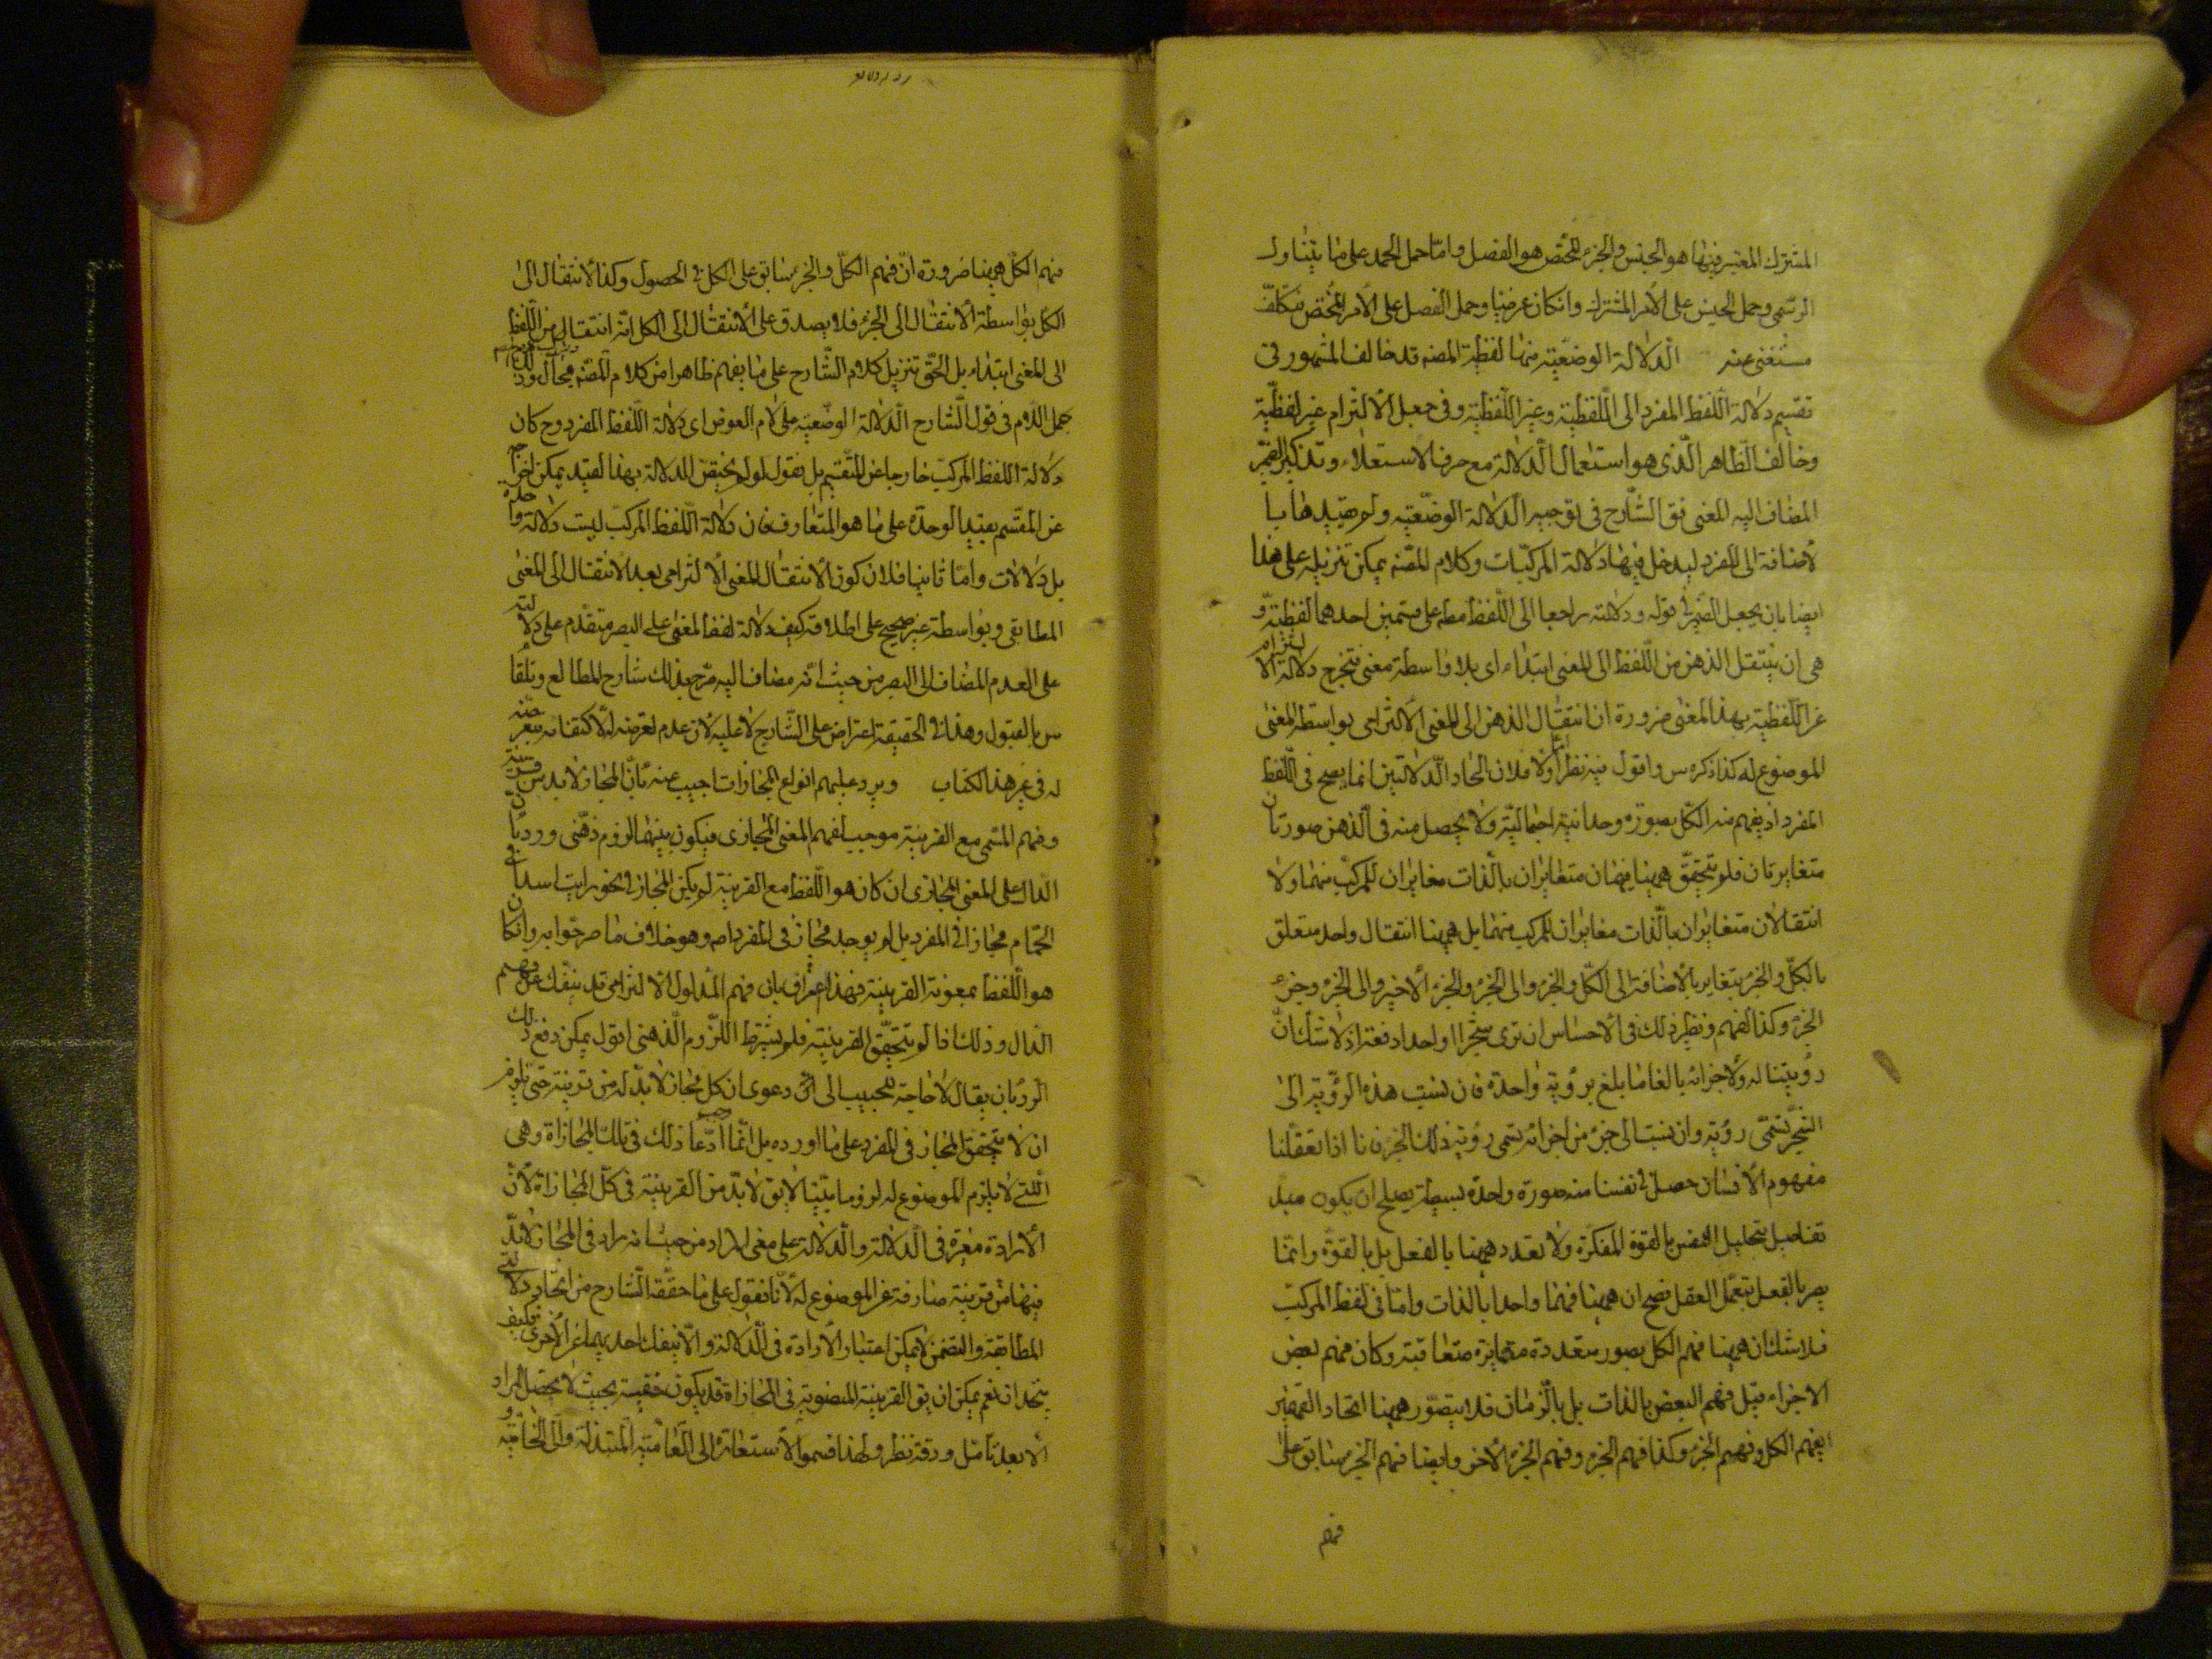 المشترك المعتبر فيها هو الجنس والجزء المختص هو الفصل واما حمل الحد على ما يتناول
الرسمي وحمل الجنس على الامر المشترك وانكان عرضيا وحمل الفصل على الامر المختص فتكلف
مستغنى عنه الدلالة الوضعية منها لفظية المصنه قد خالف المشهور في
تقسيم دلالة اللفظ المفرد الى اللفظية وغير اللفظية وفي جعل الالتزام غير لفظية
وخالف الظاهر الذي هو استعمال الدلالة مع حرف الاستعلاء وتذكير الضمير
المضاف اليه للمعنى فق الشارح في توجيه الدلالة الوضعية ولم يقيدها با
لاضافة الى المفرد ليدخل فيها دلالة المركبات وكلام المصنه يمكن تنزيله على هذا
ايضا بان يجعل الضمير في قوله ودلالته راجعا الى اللفظ مطلقا على قسمين احدهما لفظية و
هي ان ينتقل الذهن من اللفظ الى المعنى ابتداء اى بلا واسطة معنى فتخرج دلالة الا لتزام
عن اللفظية بهذا المعنى ضرورة ان انتقال الذهن الى المعنى الالتزامى بواسطة المعنى
الموضوع له كذا ذكره س واقول فيه نظر اما اولا فلان اتحاد الدلالتين انما يصح في اللفظ
المفرد اذ يفهم منه الكل بصورة وحدانية اجمالية ولا يحصل منه في الذهن صورتان
متغايرتان فلم يتحقق ههنا فهمان متغايران بالذات مغايران للمركب منهما ولا
انتقالان متغايران بالذات مغايران للمركب منهما بل ههنا انتقال واحد متعلق
بالكل والجزء يتغاير بالاضافة الى الكل والجزء والى الجزء والجزء الاخير والى الجزء وجزء
الجزء وكذا الفهم ونظير ذلك في الاحساس ان ترى شجرا واحدا دفعة اذ لا شك ان
رؤيتنا له ولاجزائه بالغا ما بلغ برؤية واحدة فان نسبت هذه الرؤية الى
الشجر تسمى رؤيته وان نسبت الى جزء من اجزائه تسمى رؤية ذلك الجزء فانا اذا تعقلنا
مفهوم الانسان حصل في نفسنا منه صورة واحدة بسيطة يصلح ان يكون مبد
تفاصيل بتحليل النفس بالقوة المفكرة ولا تعدد ههنا بالفعل بل بالقوة وانما
يصير بالفعل بتعمل العقل فصح ان ههنا فهما واحدا بالذات واما في لفظ المركب
فلا شك ان ههنا فهم الكل بصور متعددة متمايزة متعاقبة وكان فهم بعض
الاجزاء قبل فهم البعض بالذات بل بالزمان فلا يتصور ههنا اتحاد
فهم الكل وفهم الجزء وكذا فهم الجزء وفهم الجزء الاخر وايضا فهم الجزء سابق على
فهم
فهم الكل ههنا ضرورة ان فهم الكل والجزء سابق على الكل في الحصول وكذا الانتقال الى
الكل بواسطة الانتقال الى الجزء فلا يصدق على الانتقال الى الكل انه انتقال من اللفظ
الى المعنى ابتداء بل الحق تنزيل كلام الشارح على ما يفهم ظاهرا من كلام المصنه
حمل اللام في قول الشارح الدلالة الوضعية على لام العوض اى دلالة اللفظ المفرد وح كان
دلالة اللفظ المركب خارجا عن التقسيم بل نقول لو لم يختص الدلالة بهذا القيد يمكن اخراجه
عن المقسم بقيد الوحدة على ما هو المتعارف فان دلالة اللفظ المركب ليست دلالة واحدة
بل دلالات واما ثانيا فلان كون الانتقال المعنى الالتزامى بعد الانتقال الى المعنى
المطابقى وبواسطة غير صحيح على اطلاقه كيف ودلالة لفظ العمى على البصر متقدم على دلالته
على العدم المضاف الى البصر من حيث انه مضاف اليه صرح بذلك شارح المطالع وتلقاه
س بالقبول وهذا في الحقيقة اعتراض على الشارح لا عليه لان عدم تعرضه له لاكتفائه بتعرضه
له في غير هذا الكتاب ويرد عليهم انواع المجازات اجيب عنه بان المجاز لا بد من قرينة
وفهم المسمى مع القرينة موجب لفهم المعنى المجازى فيكون بينهما لزوم ذهنى ورد بان
الدال على المعنى المجازى ان كان هو اللفظ مع القرينة لم يكن المجاز في نحو رايت اسدا في
الحمام مجازا في المفرد بل لم يوجد مجاز في المفرد اصلا وهو خلاف ما صرحوا به وان كان
هو اللفظ بمعونة القرينة فهذا اعتراف بان فهم المدلول الالتزامى قد ينفك عن فهم
الدال وذلك اذا لم يتحقق القرينة فلم يشترط اللزوم الذهنى اقول يمكن دفع ذلك
الرد بان يقال لا حاجة للمجيب الى دعوى ان كل مجاز لا بد له من قرينة حتى يلزم
ان لا يتحقق المجاز في المفرد على ما اورده بل انما ادعا ذلك في تلك المجازاة وهى
التي لا يلزم الموضوع له لزوما بينا لا يق لا بد من القرينة في كل المجازاة لان
الارادة معتبرة في الدلالة والدلالة على معنى المراد من حيث انه مراد في المجاز لا بد
فيها من قرينة صارفة عن الموضوع له لانا نقول على ما حققه الشارح من اتحاد دلالتى
المطابقة والتضمن لا يمكن اعتبار الارادة في الدلالة والا ينفك احديهما عن الاخرى فكيف
يتحدان نعم يمكن ان يق القرينة المنصوبة في المجازاة قد يكون خفية بحيث لا يحصل المراد
الا بعد تامل ودقة نظر ولهذا قسموا الاستعارة الى العامية المبتذلة والى الخاصية